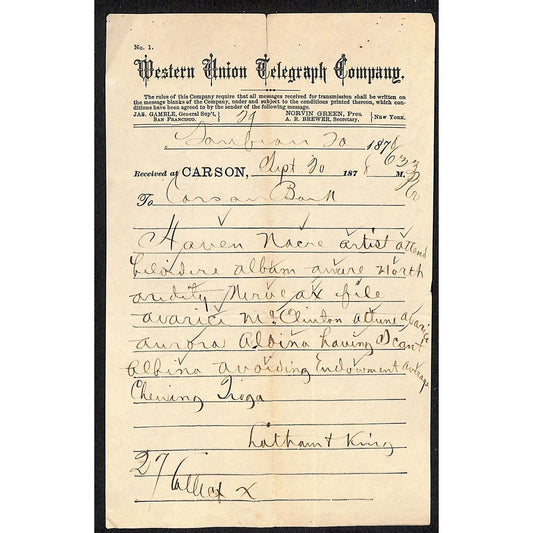 No. 1.
Western Union Telegraph Company.
The rules of this Company require that all messages received for transmission shall be written on
the message blanks of the Company, under and subject to the conditions printed thereon, which con-
ditions have been agreed to by the sender of the following message.
JAS. GAMBLE, General Sup't, SAN FRANCISCO. 29 NORVIN GREEN, Pres. A. R. BREWER, Secretary, NEW YORK.
San Fran 20 1878
Received at CARSON, Sept 20 1878 633 M.
To Carson Bank
Haven Nacre artist attend
belvidere album aware North
aridity Nerve ax file
avarice McClinton attune avarice
aurora Albina having I cant
Albina avoiding Endowment average
Chewing Tioga
Latham & King
27 Collect X